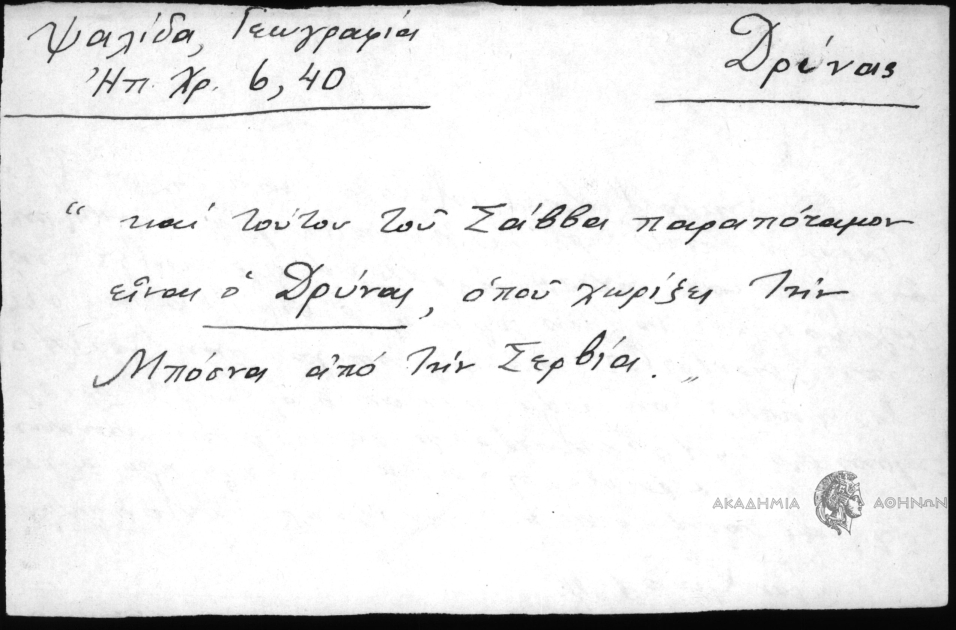 Ψαλίδα, Γεωγραφία
Ἠπ. Χρ. 6, 40
Δρύνας
“ καί τούτου τοῦ Σάββα παραπόταμον
εἶναι ὁ Δρύνας, ὁποῦ χωρίζει τήν
Μπόσνα ἀπό τήν Σερβία. „
ΑΚΑΔΗΜΙΑ ΑΘΗΝΩΝ